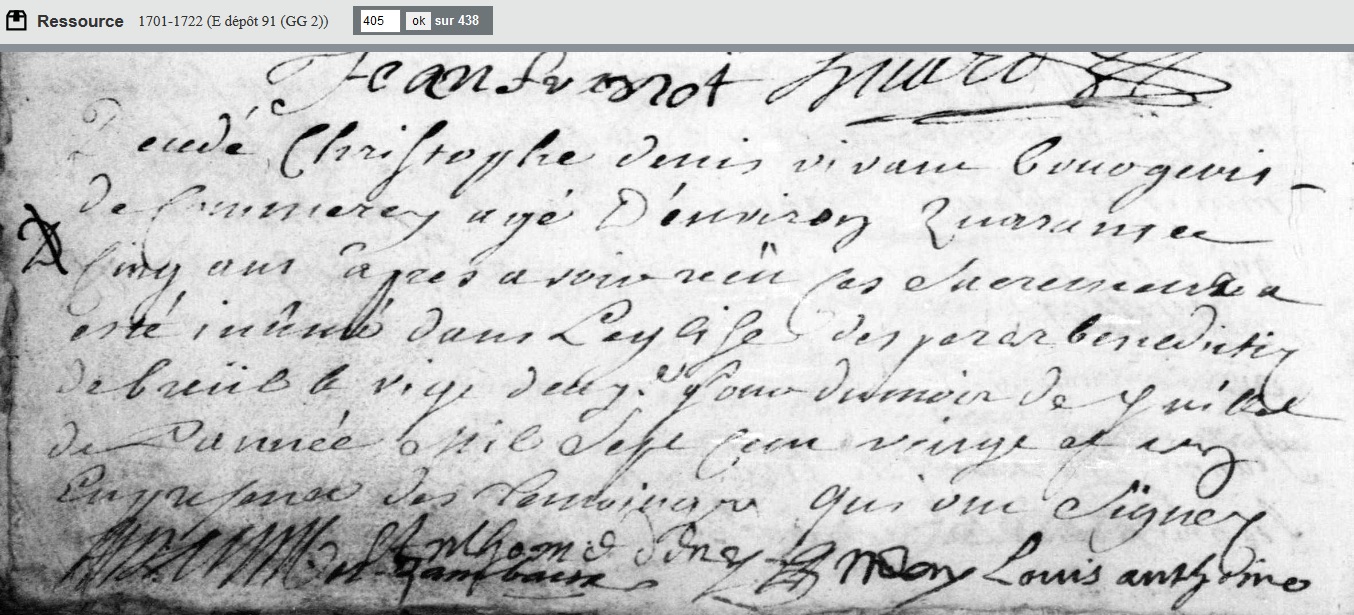 Ressource 1701-1722 (E dépôt 91 (GG 2)) 405 ok sur 438
Jean
decedé Christophe denis vivant bourgeois
de Commercy agé D'environ Quarante
cinq ans apres avoir reçû ses Sacremens a
esté inhumé dans Leglise des peres benedictin
de breüil le vingt deux.e jour du mois de Juillet
de L'année Mil Sept cent vingt et un
En presence des temoings qui ont Signez
Louis anthoine